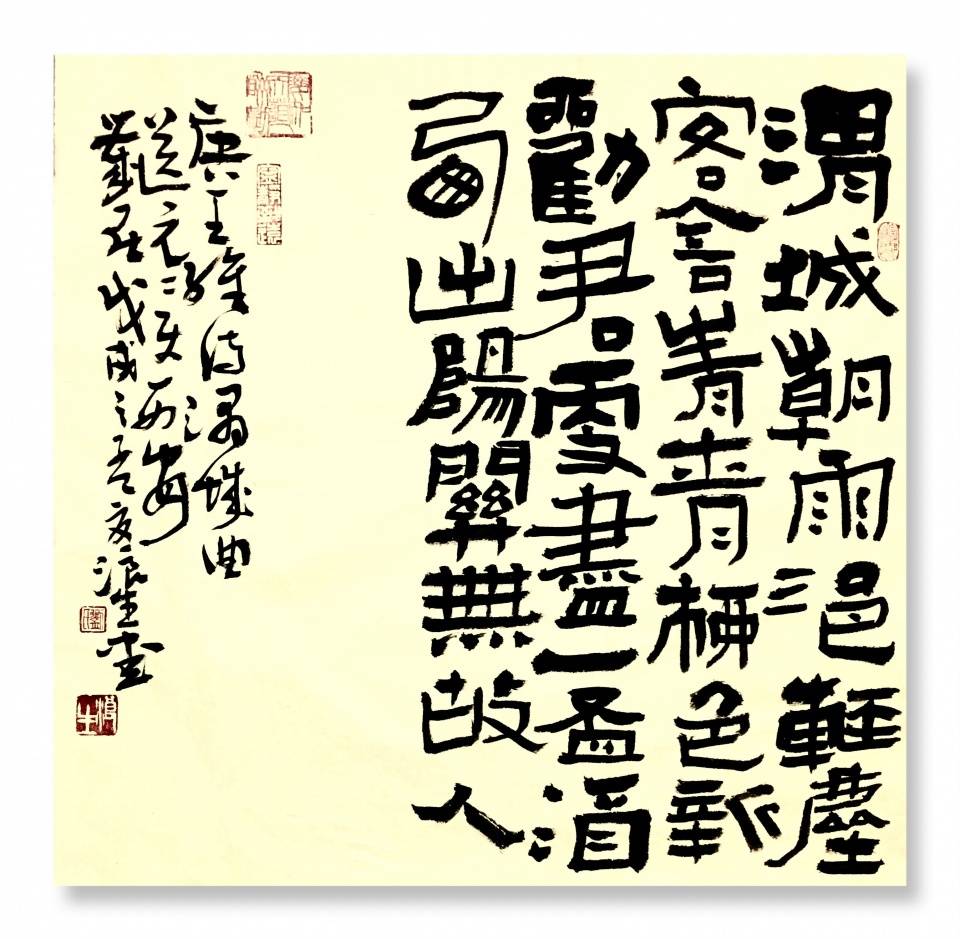 渭城朝雨浥輕塵
客舍青青柳色新
勸君更盡一盃酒
西出陽關無故人
唐王維詩渭城曲
送元二使西安
歲在戊戌之冬夜生書